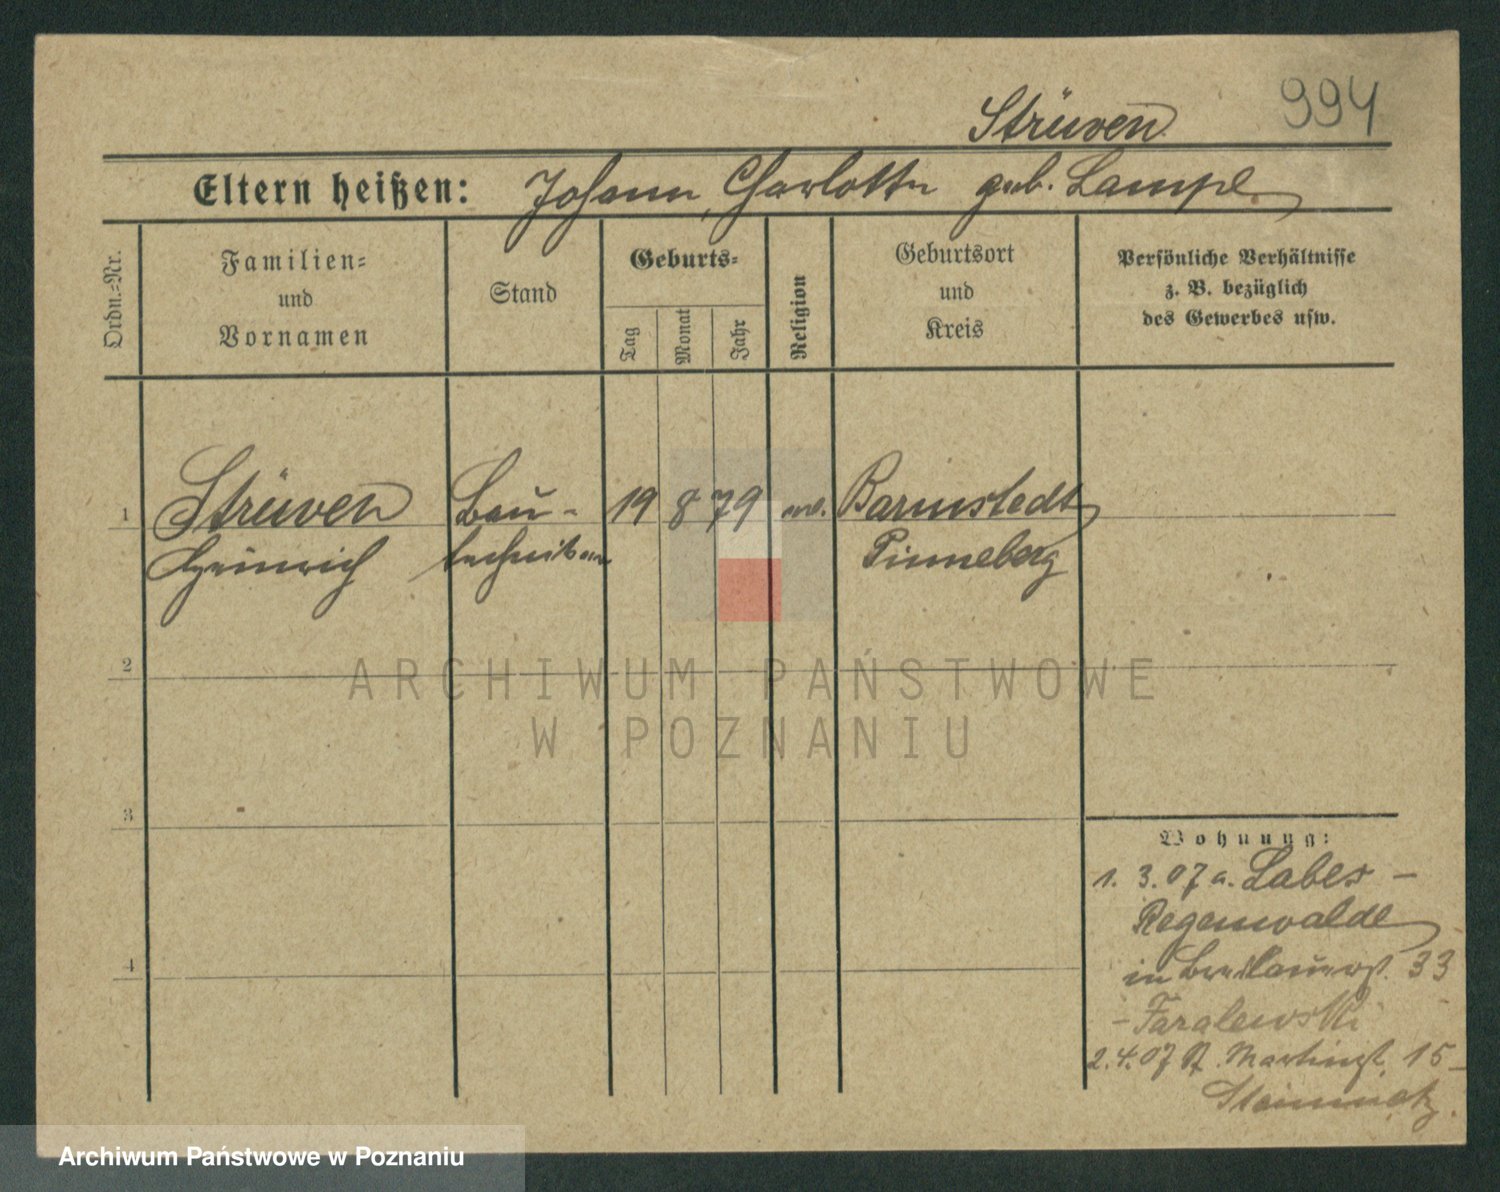 994
Strüven
Eltern heißen: Johann, Charlotte geb. Lampe
Ordn.-Nr.
Familien-
und
Vornamen
Stand
Geburts-
Tag
Monat
Jahr
Religion
Geburtsort
und
Kreis
Persönliche Verhältnisse
z. B. bezüglich
des Gewerbes usw.
1 Strüven Bau- 19 8 79 Barmstedt
Heinrich techniker Pinneberg
2
3
4
Wohnung:
1. 3. 07 a. Labes -
Regenwalde
in Breslauerst. 33
2. 4. 07 St. Martinst. 15 -
ARCHIWUM PAŃSTWOWE
W POZNANIU
Archiwum Państwowe w Poznaniu